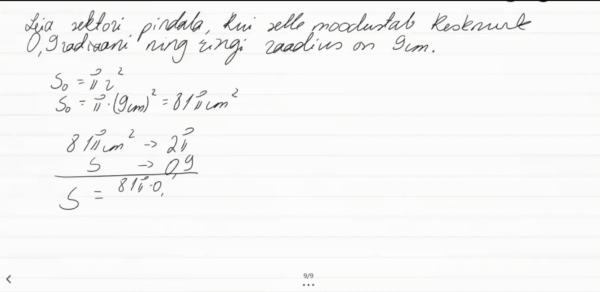 Leia sektori pindala, kui selle moodustab kesknurk
0,9 radiaani ning ringi raadius on 9cm.
S₀ = πr²
S₀ = π·(9cm)² = 81πcm²
81πcm² -> 2π
S -> 0,9
S = 81π·0,
9/9